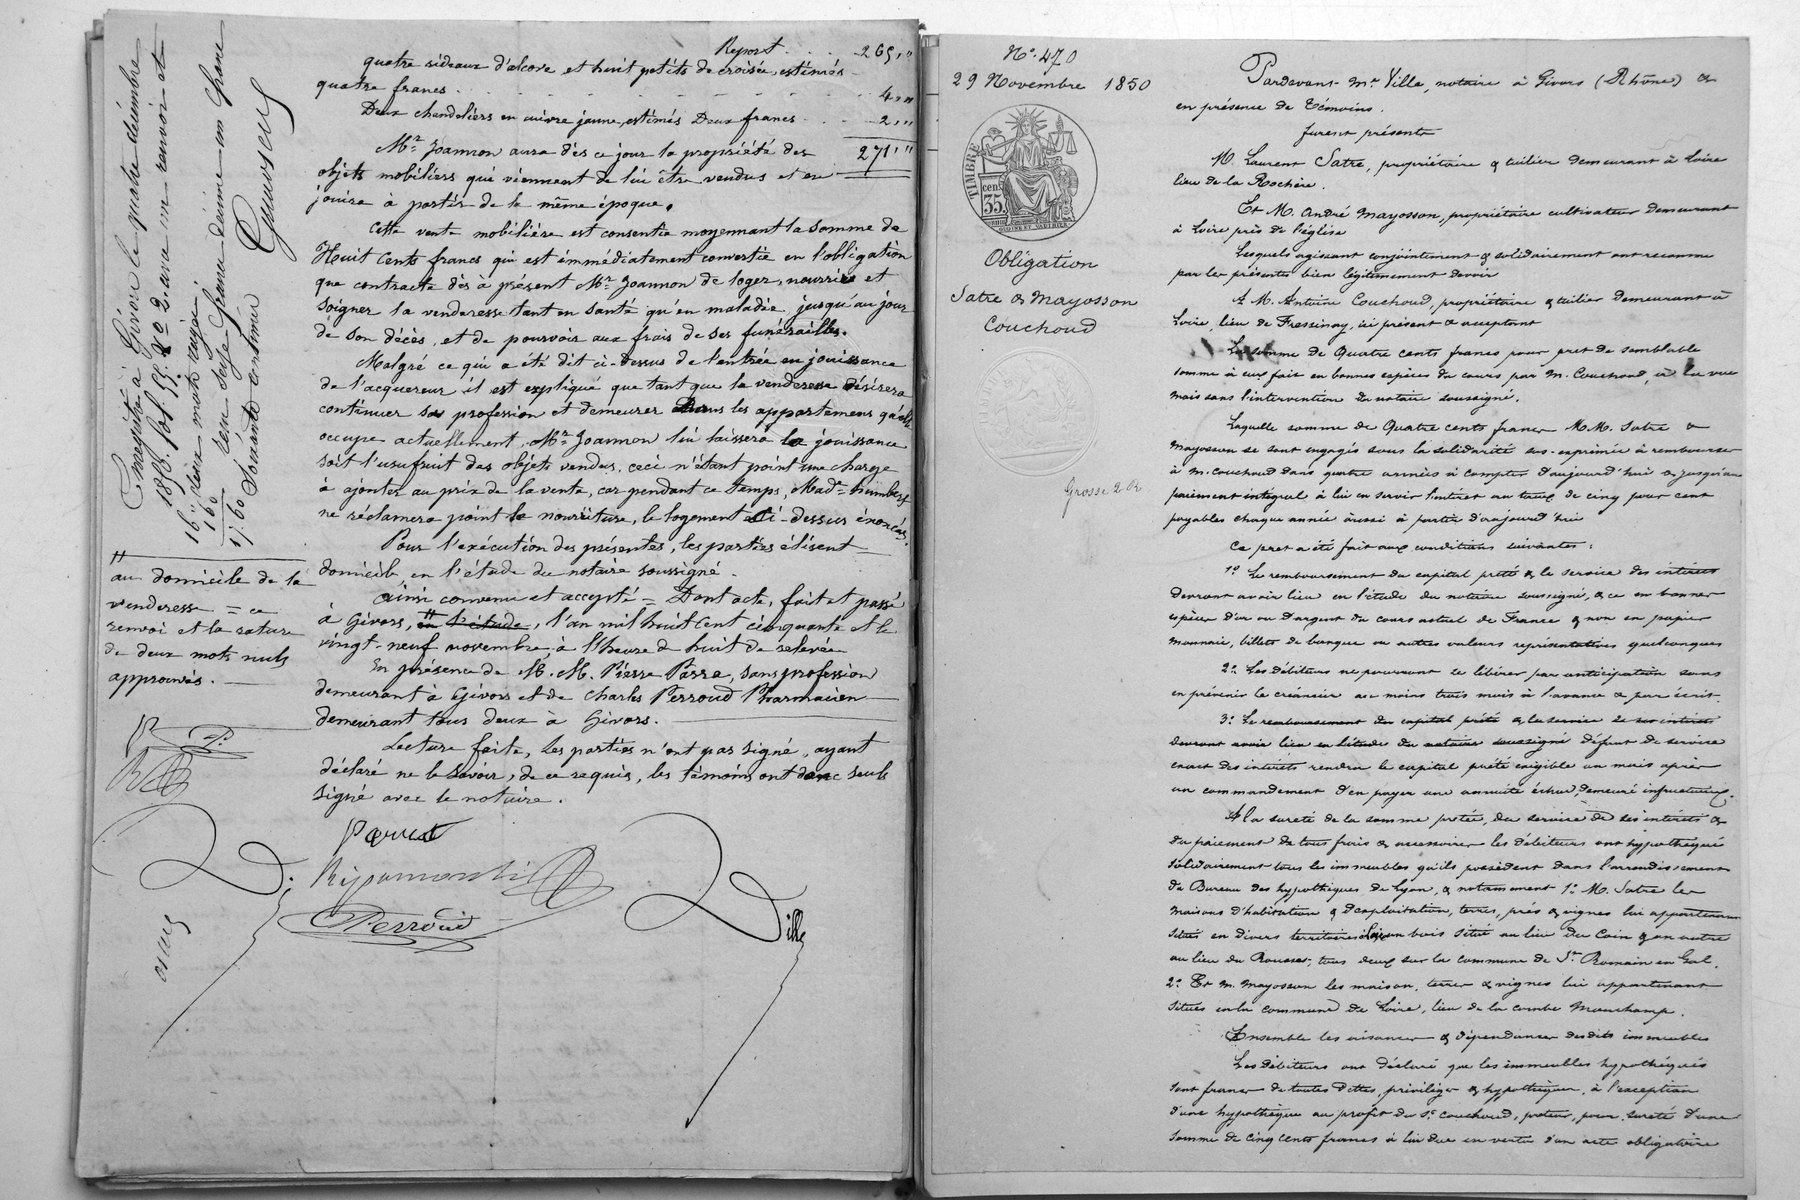 Report . . . 265, "
quatre rideaux d'alcove et huit petits de croisée, estimés
quatre francs . . . 4, "
Deux chandeliers en cuivre jaune, estimés Deux francs . . . 2, "
271, "
Mr Joannon aura dès ce jour la propriété des
objets mobiliers qui viennent de lui être vendus et en
jouira à partir de la même époque.
Cette vente mobilière est consentie moyennant la somme de
Huit Cents francs qui est immédiatement convertie en l'obligation
que contracte dès à présent Mr Joannon de loger, nourrir et
soigner la venderesse tant en santé qu'en maladie, jusqu'au jour
de son décès, et de pourvoir aux frais de ses funérailles.
Malgré ce qui a été dit ci-dessus de l'entrée en jouissance
de l'acquereur, il est expliqué que tant que la venderesse désirera
continuer sa profession et demeurer dans les appartemens qu'elle
occupe actuellement, Mr Joannon lui laissera la jouissance
soit l'usufruit des objets vendus, ceci n'étant point une charge
à ajouter au prix de la vente, car pendant ce temps, Made
ne réclamera point la nourriture, le logement ci-dessus énoncés.
Pour l'exécution des présentes, les parties élisent
domicile en l'étude du notaire soussigné.
Ainsi convenu et accepté = Dont acte, fait et passé
à Givors, en l'étude, l'an mil huit cent cinquante et le
vingt-neuf novembre, à l'heure de huit de relevée
En présence de M. M. Pierre Parra, sans profession
demeurant à Givors et de Charles Perroud Pharmacien
demeurant tous deux à Givors.
Lecture faite, les parties n'ont pas signé, ayant
déclaré ne le savoir, de ce requis, les témoins ont donc seuls
signé avec le notaire.
Perroud
Ville
au domicile de la
venderesse = ce
renvoi et la rature
de deux mots nuls
approuvés.
Enregistré à Givors le quatre décembre
1850, fol. 55, Rc 2, avec un renvoi et
deux mots rayés.
Reçu seize francs décime un franc
soixante centimes
16 "
1 60
17 60
No 470
29 Novembre 1850
TIMBRE
35 cen.
Obligation
Satre & Mayosson
Couchoud
Grosse 2 R
Pardevant Me Ville, notaire à Givors (Rhône) &
en présence de Témoins.
furent présents
M. Laurent Satre, propriétaire & tuilier demeurant à Loire
lieu de la Rochère.
Et M. André Mayosson, propriétaire cultivateur demeurant
à Loire près de l'église
Lesquels agissant conjointement & solidairement ont reconnu
par les présentes bien légitimement devoir
A M. Antoine Couchoud, propriétaire & tuilier demeurant à
Loire, lieu de Fressinay, ici présent & acceptant
La somme de Quatre cents francs pour pret de semblable
somme à eux fait en bonnes espèces du cours par M. Couchoud, à la vue
mais sans l'intervention du notaire soussigné.
Laquelle somme de Quatre cents francs M.M. Satre &
Mayosson se sont engagés sous la solidarité sus-exprimée à rembourser
à M. Couchoud dans quatre années à compter d'aujourd'hui & jusqu'au
paiement intégral à lui en servir l'intérêt au taux de cinq pour cent
payables chaque année aussi à partir d'aujourd'hui
Ce pret a été fait aux conditions suivantes :
1o Le remboursement du capital prêté & le service des intérêts
devront avoir lieu en l'étude du notaire soussigné, & ce en bonnes
espèces d'or ou d'argent du cours actuel de France & non en papier
monnaie, billets de banque ou autres valeurs représentatives quelconques
2o Les débiteurs ne pourront se libérer par anticipation sans
en prévenir le créancier au moins trois mois à l'avance & par écrit.
3o Le remboursement du capital prêté & le service de ses intérêts
devront avoir lieu en l'étude du notaire soussigné défaut de service
exact des intérêts rendra le capital prêté exigible un mois après
un commandement d'en payer une annuité échue, demeuré infructueux.
A la sureté de la somme prêtée, du service de ses intérêts &
du paiement de tous frais & accessoires les débiteurs ont hypothéqué
solidairement tous les immeubles qu'ils possèdent dans l'arrondissement
du Bureau des hypothèques de Lyon, & notamment 1o M. Satre les
maisons d'habitation & d'exploitation, terres, prés & vignes lui appartenant
situés en divers territoires un bois situé au lieu du Coin & un autre
au lieu du Rousses, tous deux sur la commune de St Romain en Gal,
2o Et M. Mayosson les maison, terres & vignes lui appartenant
situés en la commune de Loire, lieu de la combe Mouchamp.
Ensemble les aisances & dépendances desdits immeubles
Les débiteurs ont déclaré que les immeubles hypothéqués
sont francs de toutes dettes, privilèges & hypothèques, à l'exception
d'une hypothèque au profit du Sr Couchoud, preteur, pour sureté d'une
somme de cinq cents francs à lui due en vertu d'un acte obligatoire